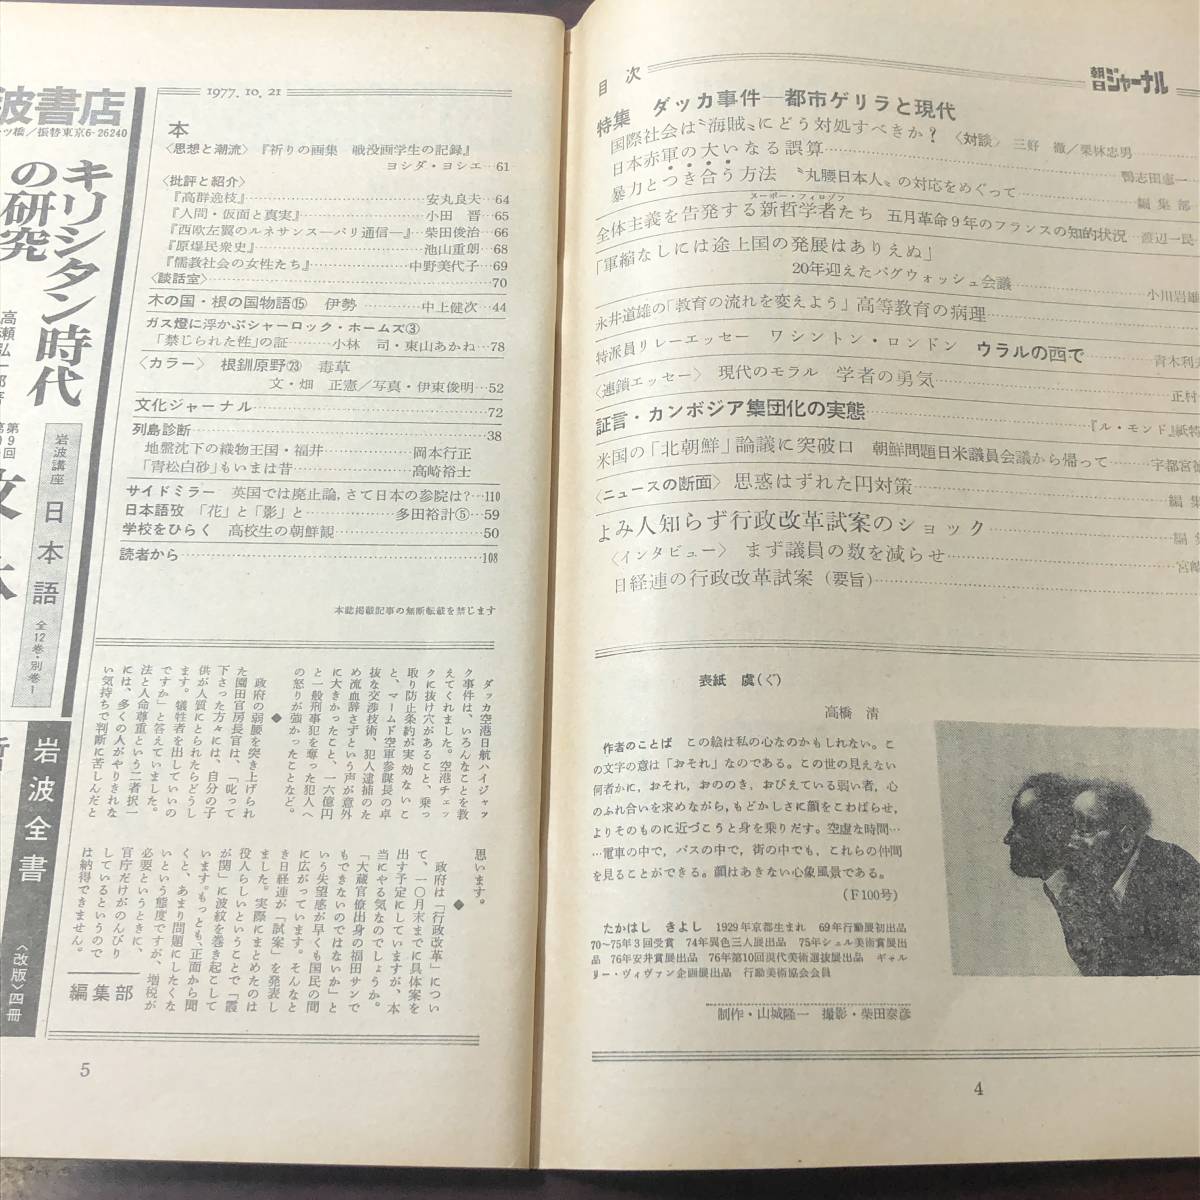 目次
朝日ジャーナル
特集　ダッカ事件―都市ゲリラと現代
国際社会は〝海賊〟にどう対処すべきか？〈対談〉三好　徹／栗林忠男
日本赤軍の大いなる誤算……鴨志田恵一
暴力とつき合う方法　〝丸腰日本人〟の対応をめぐって……編集部
全体主義を告発する新哲学者たち　五月革命９年のフランスの知的状況…渡辺一民
スーボー・フィロゾフ
「軍縮なしには途上国の発展はありえぬ」
20年迎えたパグウォッシュ会議……小川岩雄
永井道雄の「教育の流れを変えよう」高等教育の病理
特派員リレーエッセー　ワシントン・ロンドン　ウラルの西で……青木利夫
〈連鎖エッセー〉　現代のモラル　学者の勇気……正村
証言・カンボジア集団化の実態……『ル・モンド』紙特
米国の「北朝鮮」論議に突破口　朝鮮問題日米議員会議から帰って……宇都宮徳
〈ニュースの断面〉　思惑はずれた円対策……編集
よみ人知らず行政改革試案のショック……編集
〈インタビュー〉　まず議員の数を減らせ……宮崎
日経連の行政改革試案（要旨）
表紙　虞（ぐ）
高橋　清
作者のことば　この絵は私の心なのかもしれない。こ
の文字の意は「おそれ」なのである。この世の見えない
何者かに，おそれ，おののき，おびえている弱い者，心
のふれ合いを求めながら，もどかしさに顔をこわばらせ，
よりそのものに近づこうと身を乗りだす。空虚な時間…
…電車の中で，バスの中で，街の中でも，これらの仲間
を見ることができる。顔はあきない心象風景である。
（F100号）
たかはし　きよし　1929年京都生まれ　69年行動展初出品
70～75年3回受賞　74年異色三人展出品　75年シェル美術賞展出
品　76年安井賞展出品　76年第10回現代美術選抜展出品　ギャル
リー・ヴィヴァン企画展出品　行動美術協会会員
制作・山城隆一　撮影・柴田泰彦
4
1977. 10. 21
本
〈思想と潮流〉『祈りの画集　戦没画学生の記録』
ヨシダ・ヨシエ…61
〈批評と紹介〉
『高群逸枝』……安丸良夫…64
『人間・仮面と真実』……小田　晋…65
『西欧左翼のルネサンス―パリ通信―』…柴田俊治…66
『原爆民衆史』……池山重朗…68
『儒教社会の女性たち』……中野美代子…69
〈談話室〉……70
木の国・根の国物語⑮　伊勢……中上健次…44
ガス燈に浮かぶシャーロック・ホームズ③
「禁じられた性」の証……小林　司・東山あかね…78
〈カラー〉　根釧原野㉓　毒草
文・畑　正憲／写真・伊東俊明…52
文化ジャーナル……72
列島診断……38
地盤沈下の織物王国・福井……岡本行正
「青松白砂」もいまは昔……高崎裕士
サイドミラー　英国では廃止論，さて日本の参院は？…110
日本語攷　「花」と「影」と……多田裕計⑤…59
学校をひらく　高校生の朝鮮観……50
読者から……108
本誌掲載記事の無断転載を禁じます
ダッカ空港日航ハイジャッ
ク事件は、いろんなことを教
えてくれました。空港チェッ
クに抜け穴があること、乗っ
取り防止条約が実効ないこ
と、マームド空軍参謀長の卓
抜な交渉技術、犯人逮捕のた
め流血辞さずという声が意外
に大きかったこと、一六億円
と一般刑事犯を奪った犯人へ
の怒りが強かったことなど。
◆
政府の弱腰を突き上げられ
た園田官房長官は、「叱って
下さった方々には、自分の子
供が人質にとられたらどうし
ます。犠牲者を出していいの
ですか」と答えていました。
法と人命尊重という二者択一
には、多くの人がやりきれな
い気持ちで判断に苦しんだと
思います。
◆
政府は「行政改革」につい
て、一〇月末までに具体案を
出す予定にしていますが、本
当にやる気なのでしょうか。
「大蔵官僚出身の福田サンで
もできないのではないか」と
いう失望感が早くも国民の間
に広がっています。そんなと
き日経連が「試案」を発表し
ました。実際にまとめたのは
役人らしいということで「霞
が関」に波紋を巻き起こして
います。もっとも、正面から聞
くと、あまり問題にしたくな
いという態度ですが、増税が
必要というときに、
官庁だけがのんびり
しているというので
は納得できません。
編集部
5
波書店
ツ橋／振替東京6-26240
キリシタン時代
の研究
高瀬弘一郎著
岩波講座　日本語　全12巻・別巻1
岩波全書
〈改版〉四冊